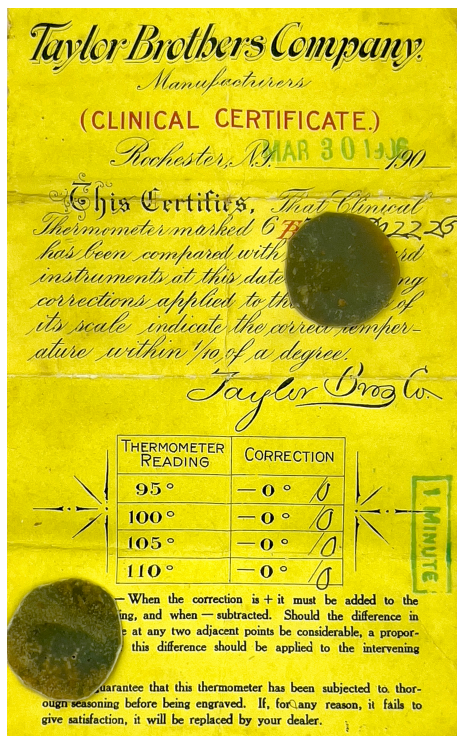 Taylor Brothers Company.
Manufacturers
(CLINICAL CERTIFICATE.)
Rochester, N.Y. MAR 30 1906 190
This Certifies, That Clinical
Thermometer marked 6 2223
has been compared with
instruments at this date
corrections applied to of
its scale indicate the correct temper-
ature within 1/10 of a degree.
Taylor Bros Co.
THERMOMETER READING CORRECTION
95° —0° /0
100° —0° /0
105° —0° /0
110° —0° /0
1 MINUTE
— When the correction is + it must be added to the
and when — subtracted. Should the difference in
at any two adjacent points be considerable, a propor-
this difference should be applied to the intervening
guarantee that this thermometer has been subjected to thor-
ough seasoning before being engraved. If, for any reason, it fails to
give satisfaction, it will be replaced by your dealer.